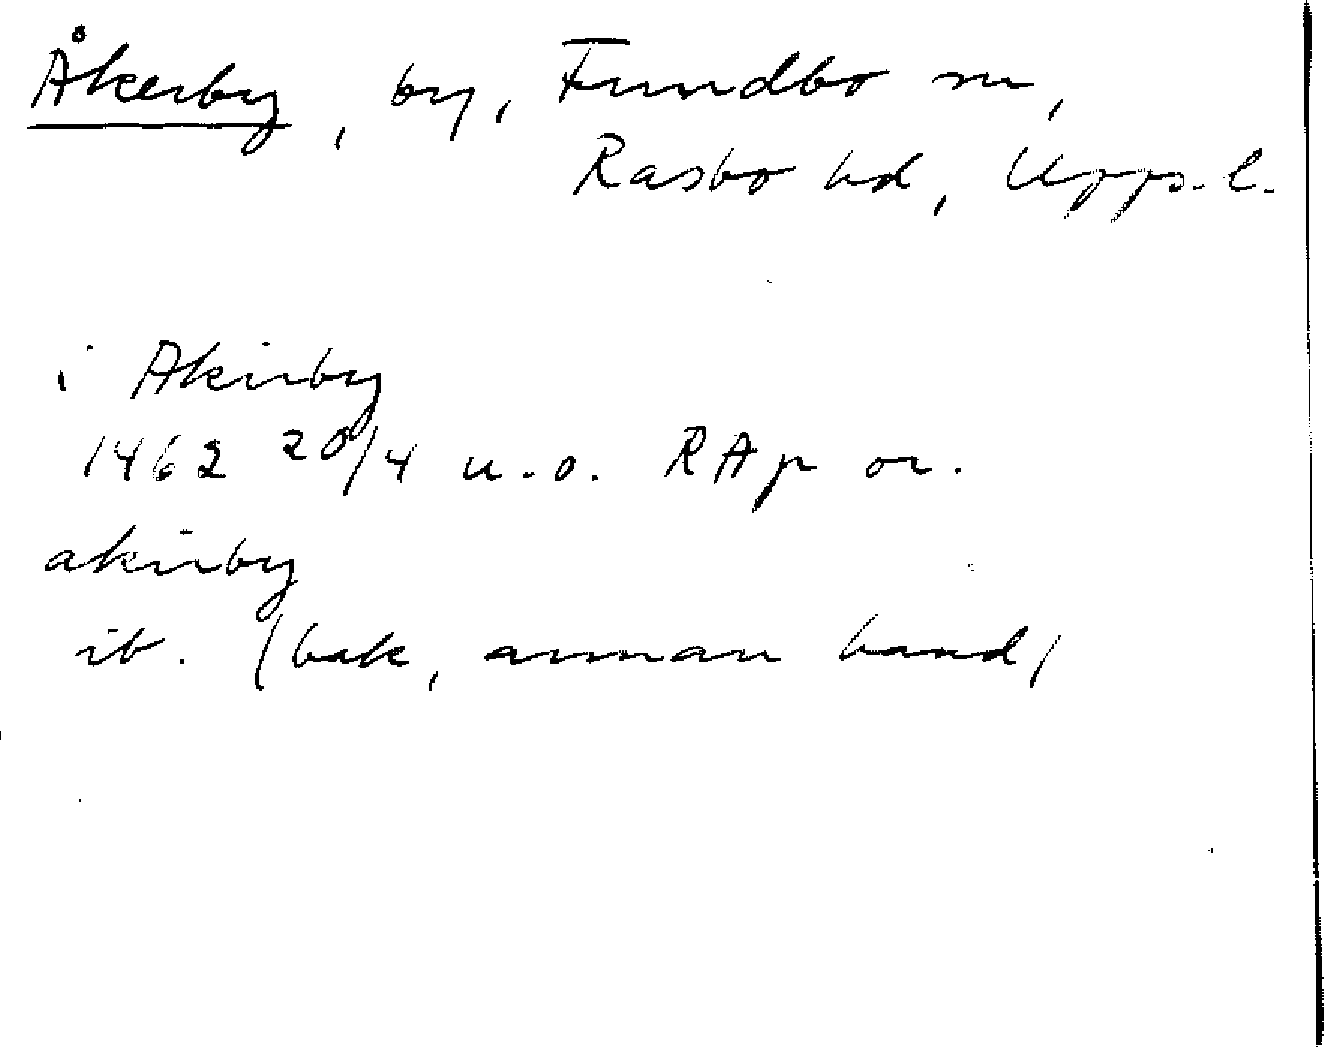 Åkerby, by, Funbo sn,
Rasbo hd, Upps. l.
i Akirby
1462 20/4 u.o. RAp or.
akirby
ib. (bak, annan hand)